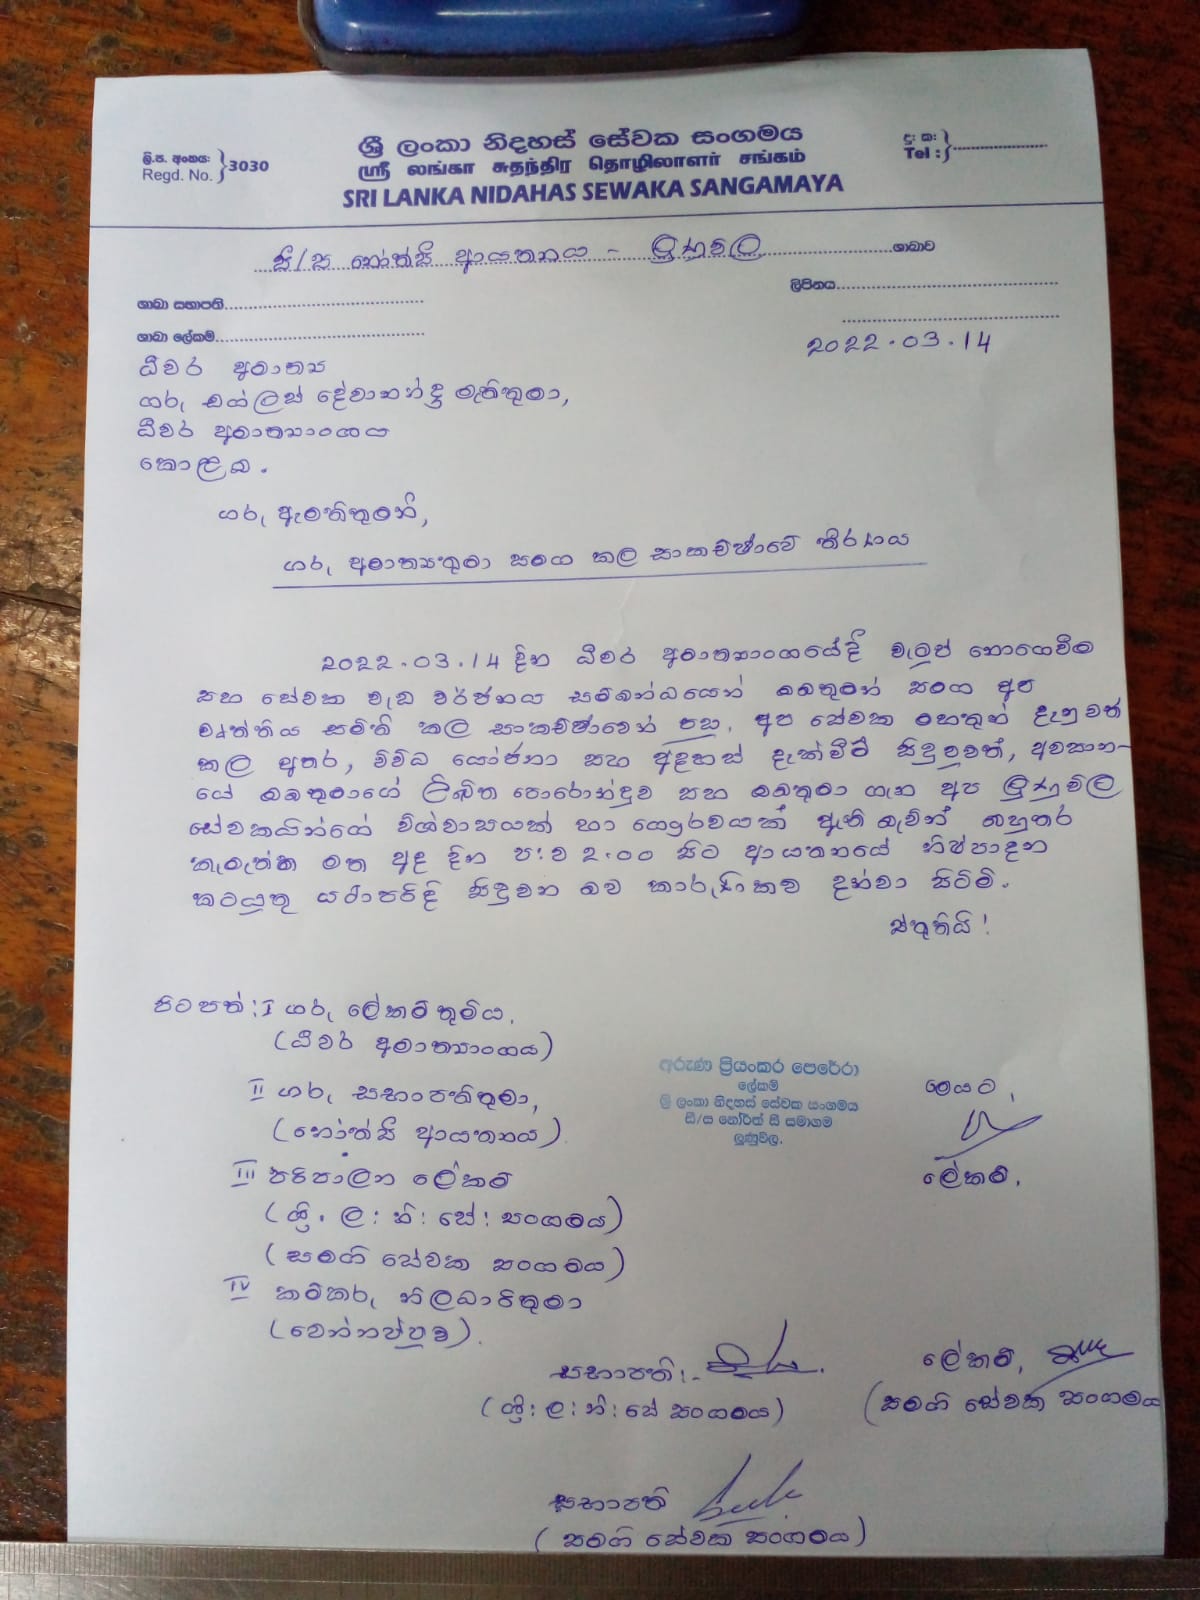 ශ්‍රී ලංකා නිදහස් සේවක සංගමය
ஸ்ரீ லங்கா சுதந்திர தொழிலாளர் சங்கம்
SRI LANKA NIDAHAS SEWAKA SANGAMAYA
ලි.ප. අංකය:
Regd. No.
3030
දු: ක:
Tel :
සී/ස නෝත්සී ආයතනය - ලුණුවිල ශාඛාව
ශාඛා සභාපති
ලිපිනය
ශාඛා ලේකම්
2022.03.14
ධීවර අමාත්‍ය
ගරු ඩග්ලස් දේවානන්ද මැතිතුමා,
ධීවර අමාත්‍යාංශය
කොළඹ.
ගරු ඇමතිතුමනි,
ගරු අමාත්‍යතුමා සමග කල සාකච්ඡාවේ තීරණය
2022.03.14 දින ධීවර අමාත්‍යාංශයේදී වැටුප් නොගෙවීම
සහ සේවක වැඩ වර්ජනය සම්බන්ධයෙන් ඔබතුමන් සමග අප
වෘත්තිය සමිති කල සාකච්ඡාවෙන් පසු, අප සේවක මහතුන් දැනුවත්
කල අතර, විවිධ යෝජනා සහ අදහස් දැක්වීම් සිදුවුවත්, අවසාන-
යේ ඔබතුමාගේ ලිඛිත පොරොන්දුව සහ ඔබතුමා ගැන අප ලුණුවිල
සේවකයින්ගේ විශ්වාසයක් හා ගෞරවයක් ඇති බැවින් බහුතර
කැමැත්ත මත අද දින ප:ව 2.00 සිට ආයතනයේ නිෂ්පාදන
කටයුතු යථාපරිදි සිදුවන බව කාරුණිකව දන්වා සිටිමි.
ස්තුතියි!
පිටපත්: I ගරු ලේකම්තුමිය,
(ධීවර අමාත්‍යාංශය)
II ගරු සභාපතිතුමා,
(නෝත්සී ආයතනය)
III පරිපාලන ලේකම්
(ශ්‍රී. ල: නි: සේ: සංගමය)
(සමගි සේවක සංගමය)
IV කම්කරු නිලධාරිතුමා
(වෙන්නප්පුව).
අරුණ ප්‍රියංකර පෙරේරා
ලේකම්
ශ්‍රී ලංකා නිදහස් සේවක සංගමය
සී/ස නෝර්ත් සී සමාගම
ලුණුවිල.
මෙයට,
ලේකම්,
සභාපති:-
(ශ්‍රී: ල: නි: සේ සංගමය)
ලේකම්,
(සමගි සේවක සංගමය
සභාපති
(සමගි සේවක සංගමය)